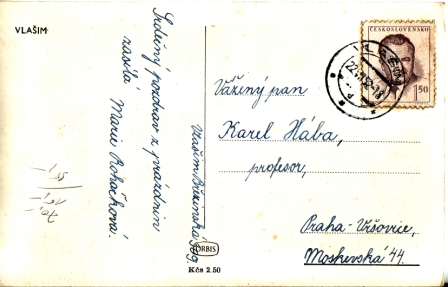 VLAŠIM
Srdečný pozdrav z prázdnin
zasílá
Marie Roháčková.
Vlašim Březinská
ORBIS
Kčs 2.50
ČESKOSLOVENSKO
1.50
Vážený pan
Karel Hába,
profesor,
Praha - Vršovice,
Moskevská 44.